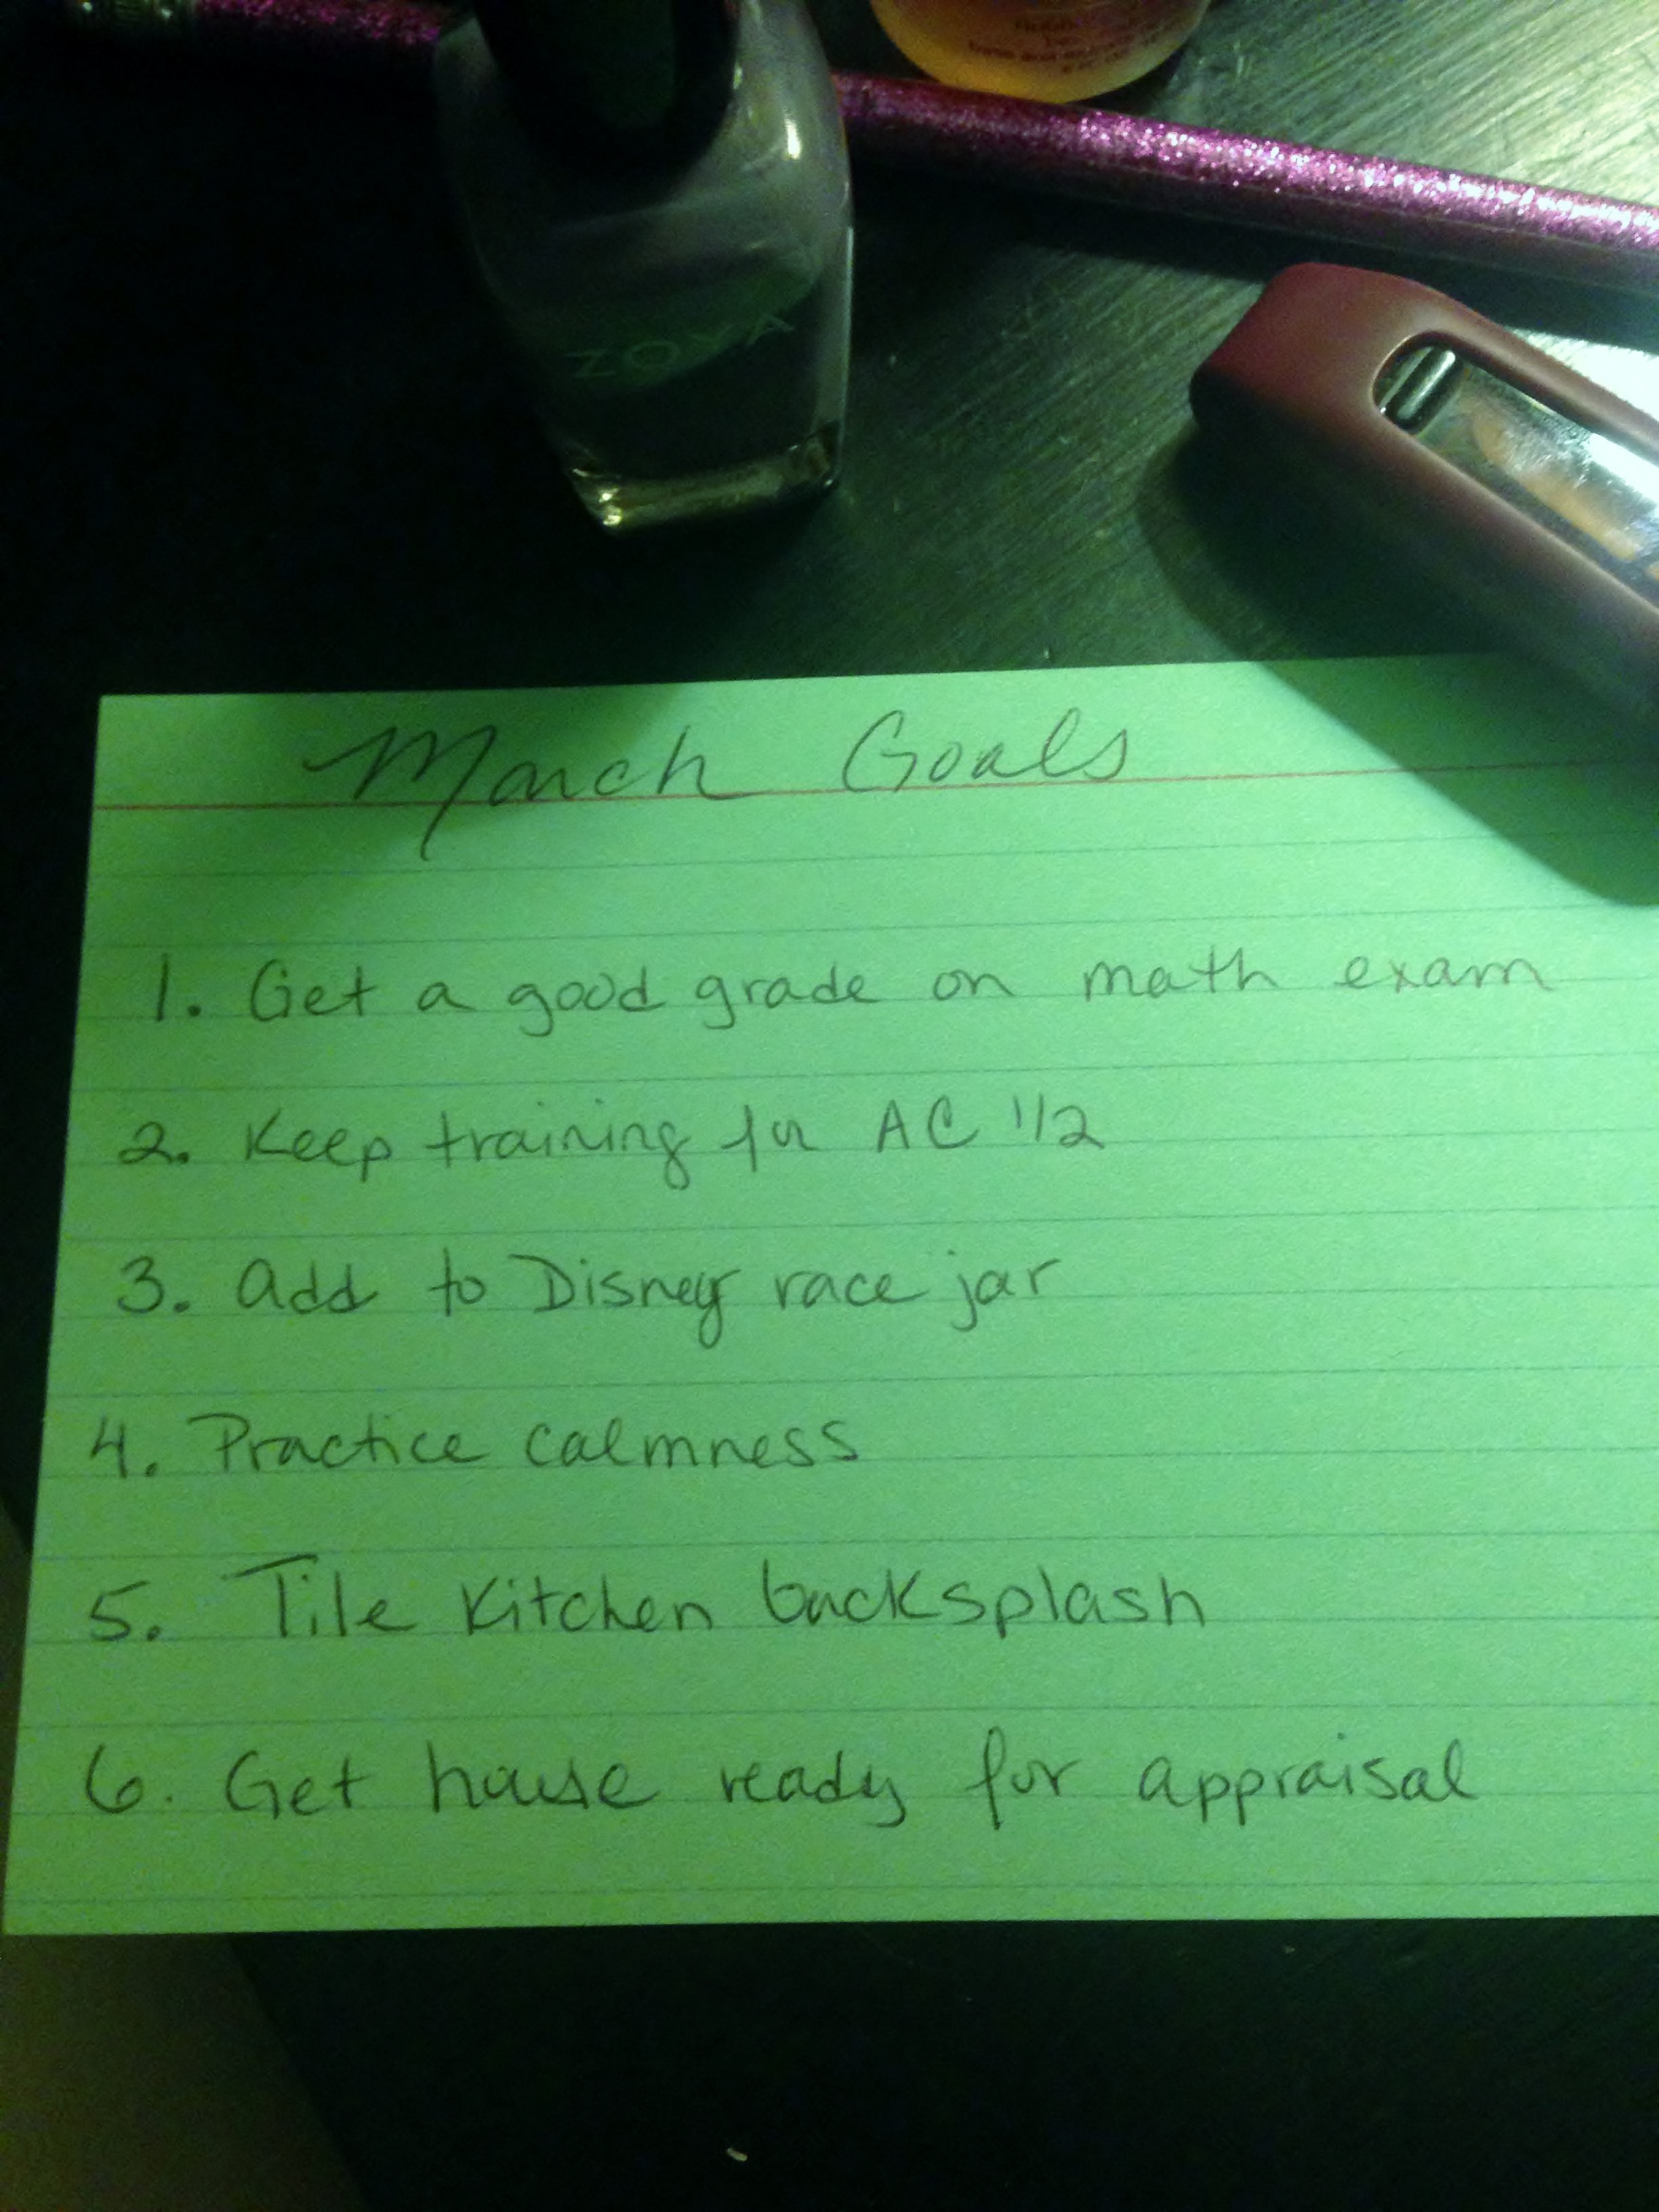 ZOYA
March Goals
1. Get a good grade on math exam
2. Keep training for AC 1/2
3. add to Disney race jar
4. Practice calmness
5. Tile Kitchen backsplash
6. Get house ready for appraisal